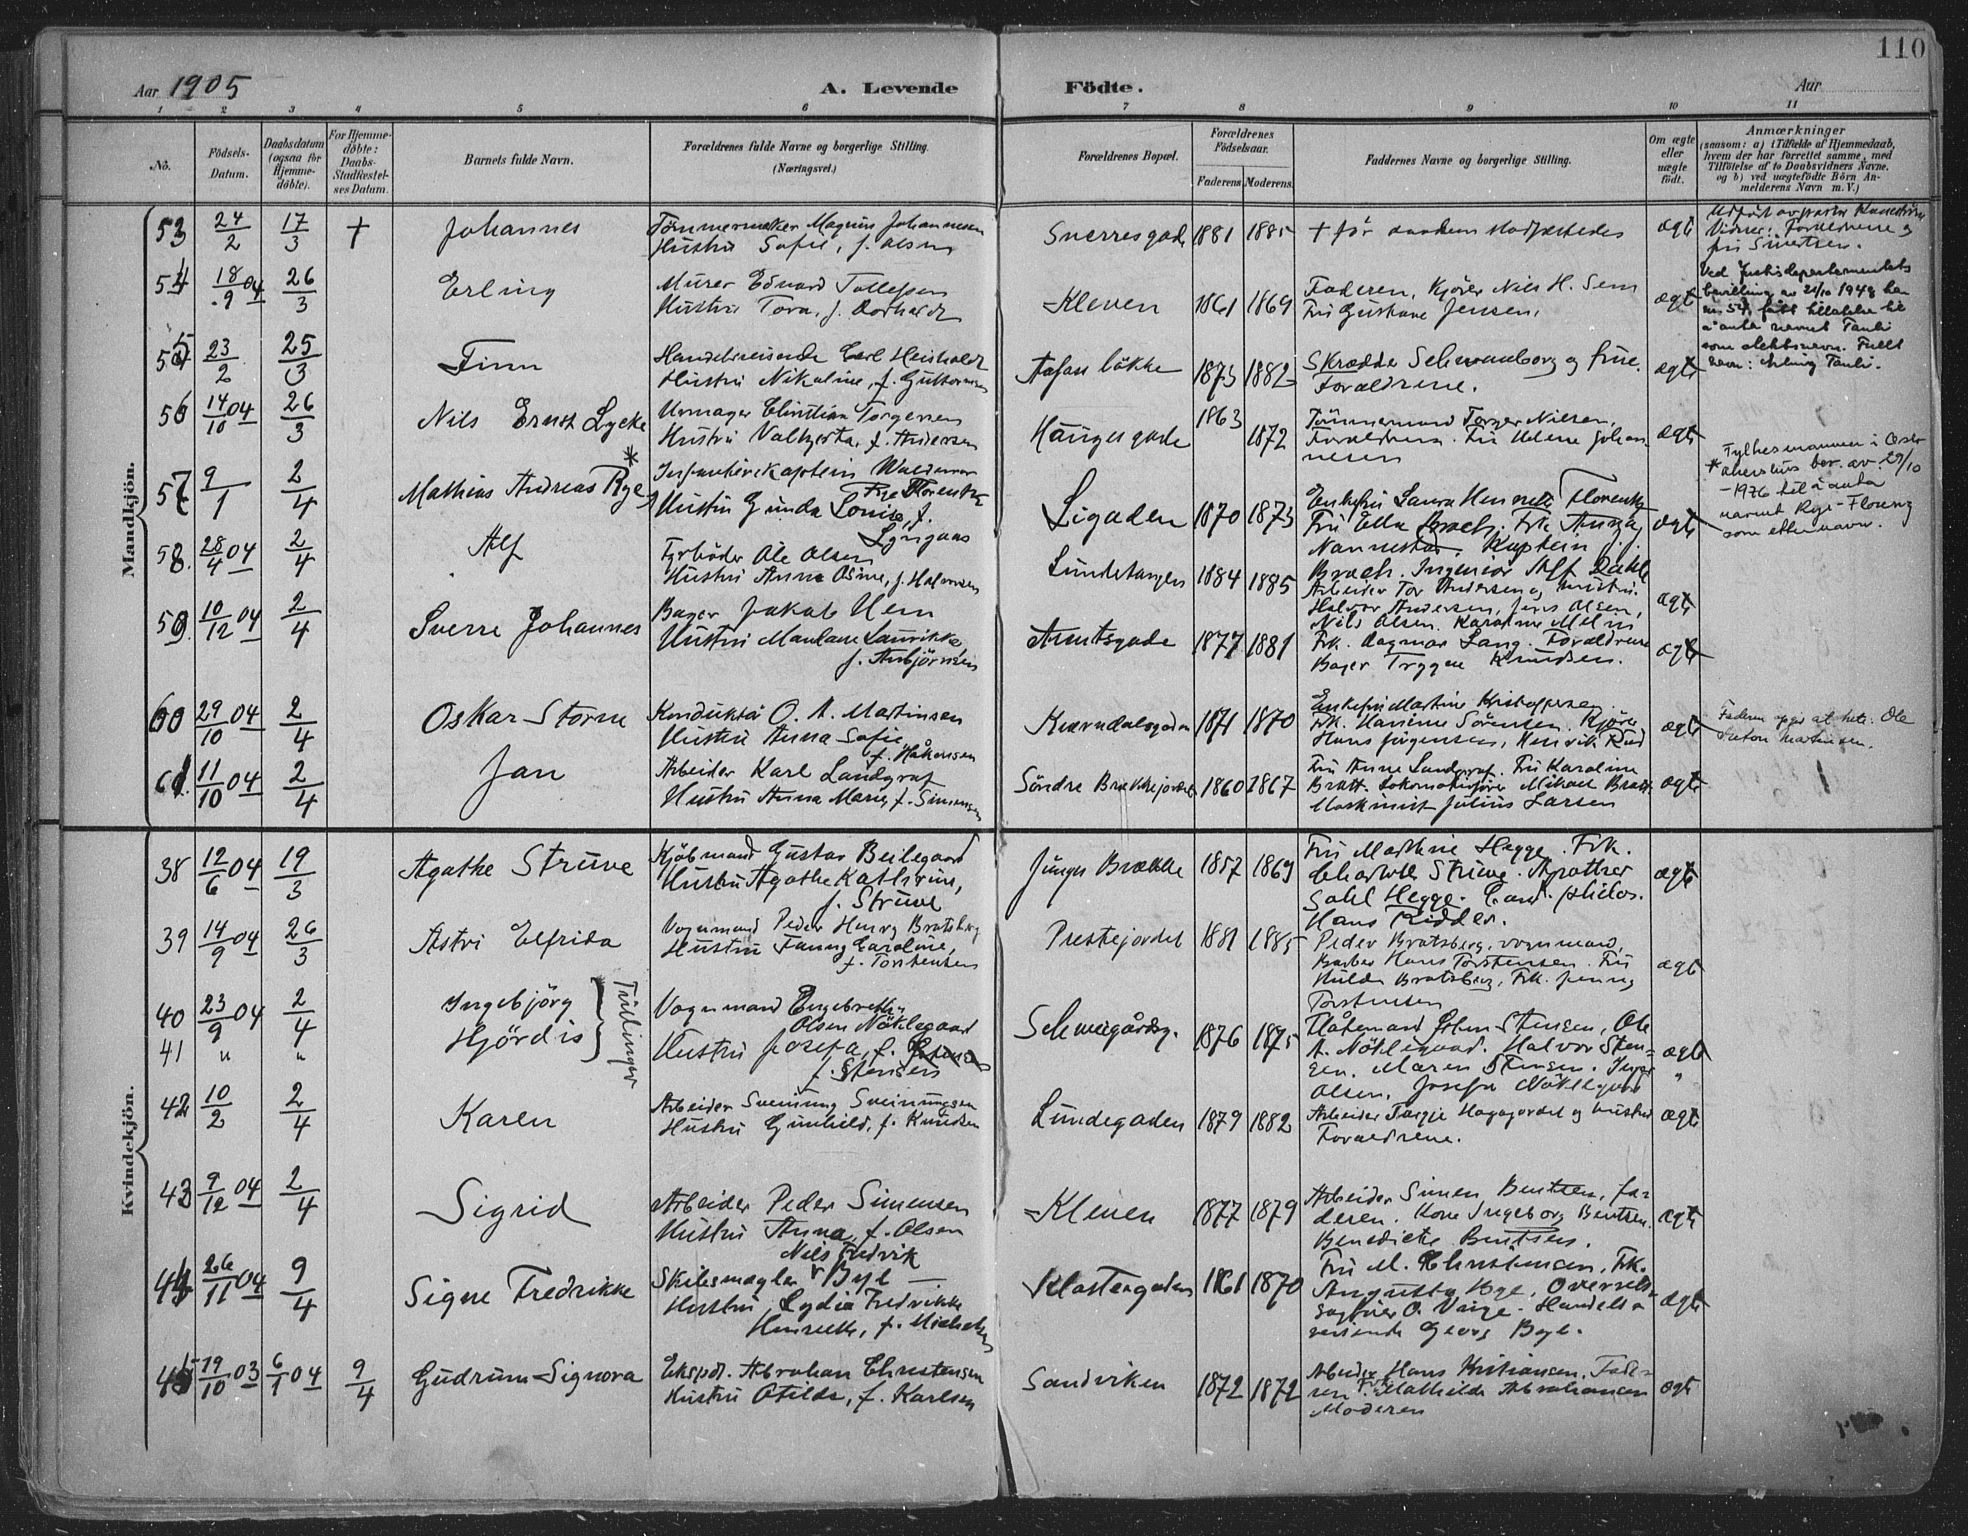 110
Aar 1905
A. Levende
Födte.
Aar
1 2 3 4 5 6 7 8 9 10 11
No.
Födsels-
Datum.
Daabsdatum
(ogsaa for
Hjemme-
døbte).
For Hjemme-
døbte:
Daabs-
Stadfæstel-
ses Datum.
Barnets fulde Navn.
Forældrenes fulde Navne og borgerlige Stilling.
(Næringsvei.)
Forældrenes Bopæl.
Forældrenes
Födselsaar.
Faderens Moderens.
Faddernes Navne og borgerlige Stilling.
Om ægte
eller
uægte
födt.
Anmærkninger
(saasom: a) i Tilfælde af Hjemmedaab,
hvem der har forrettet samme, med
Tilföielse af to Daabsvidners Navne.
og b) ved uægtefödte Börn An-
melderens Navn m. V.)
Mandkjön.
53 24/2 17/3 + Johannes
Tömmermester Magnus Johannesen
Hustru Sofie, f. Olsen
Sverresgade 1881 1885 + før daabens stadfæstedes ægte
Vidner: Forældrene og
54 18/9 04 26/3 Erling
Murer Edvard Tollefsen
Hustru Tora, f.
Kleven 1861 1869
Faderen, Kjører Nils H. Sem
Fru Gustava Jensen. ægte
Ved Justisdepartementets
bevilling av 21/10 1948 har
nr. 54 fått tillatelse til
å anta navnet Tanli
som slektsnavn. Fullt
navn: Erling Tanli.
55 23/2 25/3 Finn
Handelsreisende Carl
Hustru Nikoline, f. Guttormsen
løkke 1873 1882
Skrædder og frue.
Forældrene. ægte
56 14/10 04 26/3 Nils Ernst Lycke
Urmager Christian Torgersen
Hustru Valborg, f. Andersen
Haugesgade 1863 1872
Tömmermand Torger Nilsen.
Forældrene. Fru Helene Johan
nesen ægte
57 9/1 2/4 Mathias Andreas Rye *
Infanterikaptein Waldemar
Rye Florentz
Hustru Gunda Louise, f.
Lyngaas
Ligaden 1870 1873
Enkefru Laura Henriette Florentz
Fru Ella Broch. Frk. Aasta
Nannestad. Kaptein
Broch. Ingeniör Alf Dahl ægte
Fylkesmannen i Oslo-
* Akershus bev. av 29/10
-1926 til å anta
navnet Rye-Florentz
som etternavn.
58. 28/4 04 2/4 Alf
Fyrböder Ole Olsen
Hustru Anna Osine, f. Halvorsen
Lundetangen 1884 1885
Arbeider Tor Andersen og hustru.
Halvor Andersen, Jens Olsen,
Nils Olsen. Karoline ægte
59. 10/12 04 2/4 Sverre Johannes
Bager Jakob Hem
Hustru Mandane Laurikke
f. Anbjörnsen
Amtsgade 1877 1881
Frk. Dagmar Lang. Forældrene
Bager Trygve Knudsen. ægte
60 29/10 04 2/4 Oskar Storm
Konduktör O. A. Martinsen
Hustru Anna Sofie
f. Håkonsen
Kverndalsgaden 1871 1870
Enkefru Martine Kristoffersen.
Frk. Hanine Sörensen. Kjører
Hans Jörgensen, Henrik Rud ægte
Faderen opgir at hete: Ole
Anton Martinsen.
61. 11/10 04 2/4 Jan
Arbeider Karl Landgraf
Hustru Anna Marie, f. Simonsen
Söndre Brekkejordet 1860 1867
Fru Anne Landgraf. Fru Karoline
Bratt. Lokomotivfører Mikael Bratt.
Maskinist Julius Larsen ægte
Kvindekjön.
38 12/6 04 19/3 Agathe Strüwe
Kjöbmand Gustav Beilegaard
Hustru Agathe Kathrine,
f. Strüwe
Brække 1857 1869
Fru Marthine Hegge. Frk.
Charlotte Strüwe. Apotheker
Hegge. Cand. philos.
Hans Ridder. ægte
39 14/9 04 26/3 Astri Elfrida
Vognmand Peder Henry Bratsberg
Hustru Fanny Caroline,
f. Torstensen
Prestejordet 1881 1885
Peder Bratsberg, vognmand,
Barber Hans Torstensen. Fru
Hulda Bratsberg, Frk. Jenny
Torstensen ægte
40 23/9 04 2/4 Ingebjörg
41 " " Hjördis
Tvillinger
Vognmand Engebreth
Olsen Nöklegaard
Hustru Josefa, f.
f. Stensen
Schweigårdsg. 1876 1875
Flåtemand John Stensen, Ole
A. Nöklegaard. Halvor Sten-
sen. Maren Stensen. Inger
Olsen. Josefa Nöklegaard ægte
"
42 10/2 2/4 Karen
Arbeider Sveinung Sveinungsen
Hustru Gunhild, f. Knudsen
Lundegaden 1879 1882
Arbeider Targje Hagajordet og hustru
Forældrene. ægte
43 9/12 04 2/4 Sigrid
Arbeider Peder Simonsen
Hustru Anna, f. Olsen
Kleven 1877 1879
Arbeider Simen Bentsen, fa-
deren. Kone Ingeborg Bentsen.
Benedicte Bentsen. ægte
44 26/11 04 9/4 Signe Fredrikke
Nils Fredrik
Skibsmægler Bye —
Hustru Lydia Fredrikke
Henriette, f. Michelsen
Klostergaden 1861 1870
Fru M. Christensen, Frk.
Augusta Bye, Overrets-
sagförer O. Vinje. Handels-
reisende Georg Bye. ægte
45 19/10 03 6/1 04 9/4 Gudrun Signora
Ekspdr. Abraham Christensen
Hustru Otilde, f. Karlsen
Sandviken 1872 1872
Arbeider Hans Kristiansen, Fade-
ren Frk. Mathilde Abrahamsen
Moderen ægte